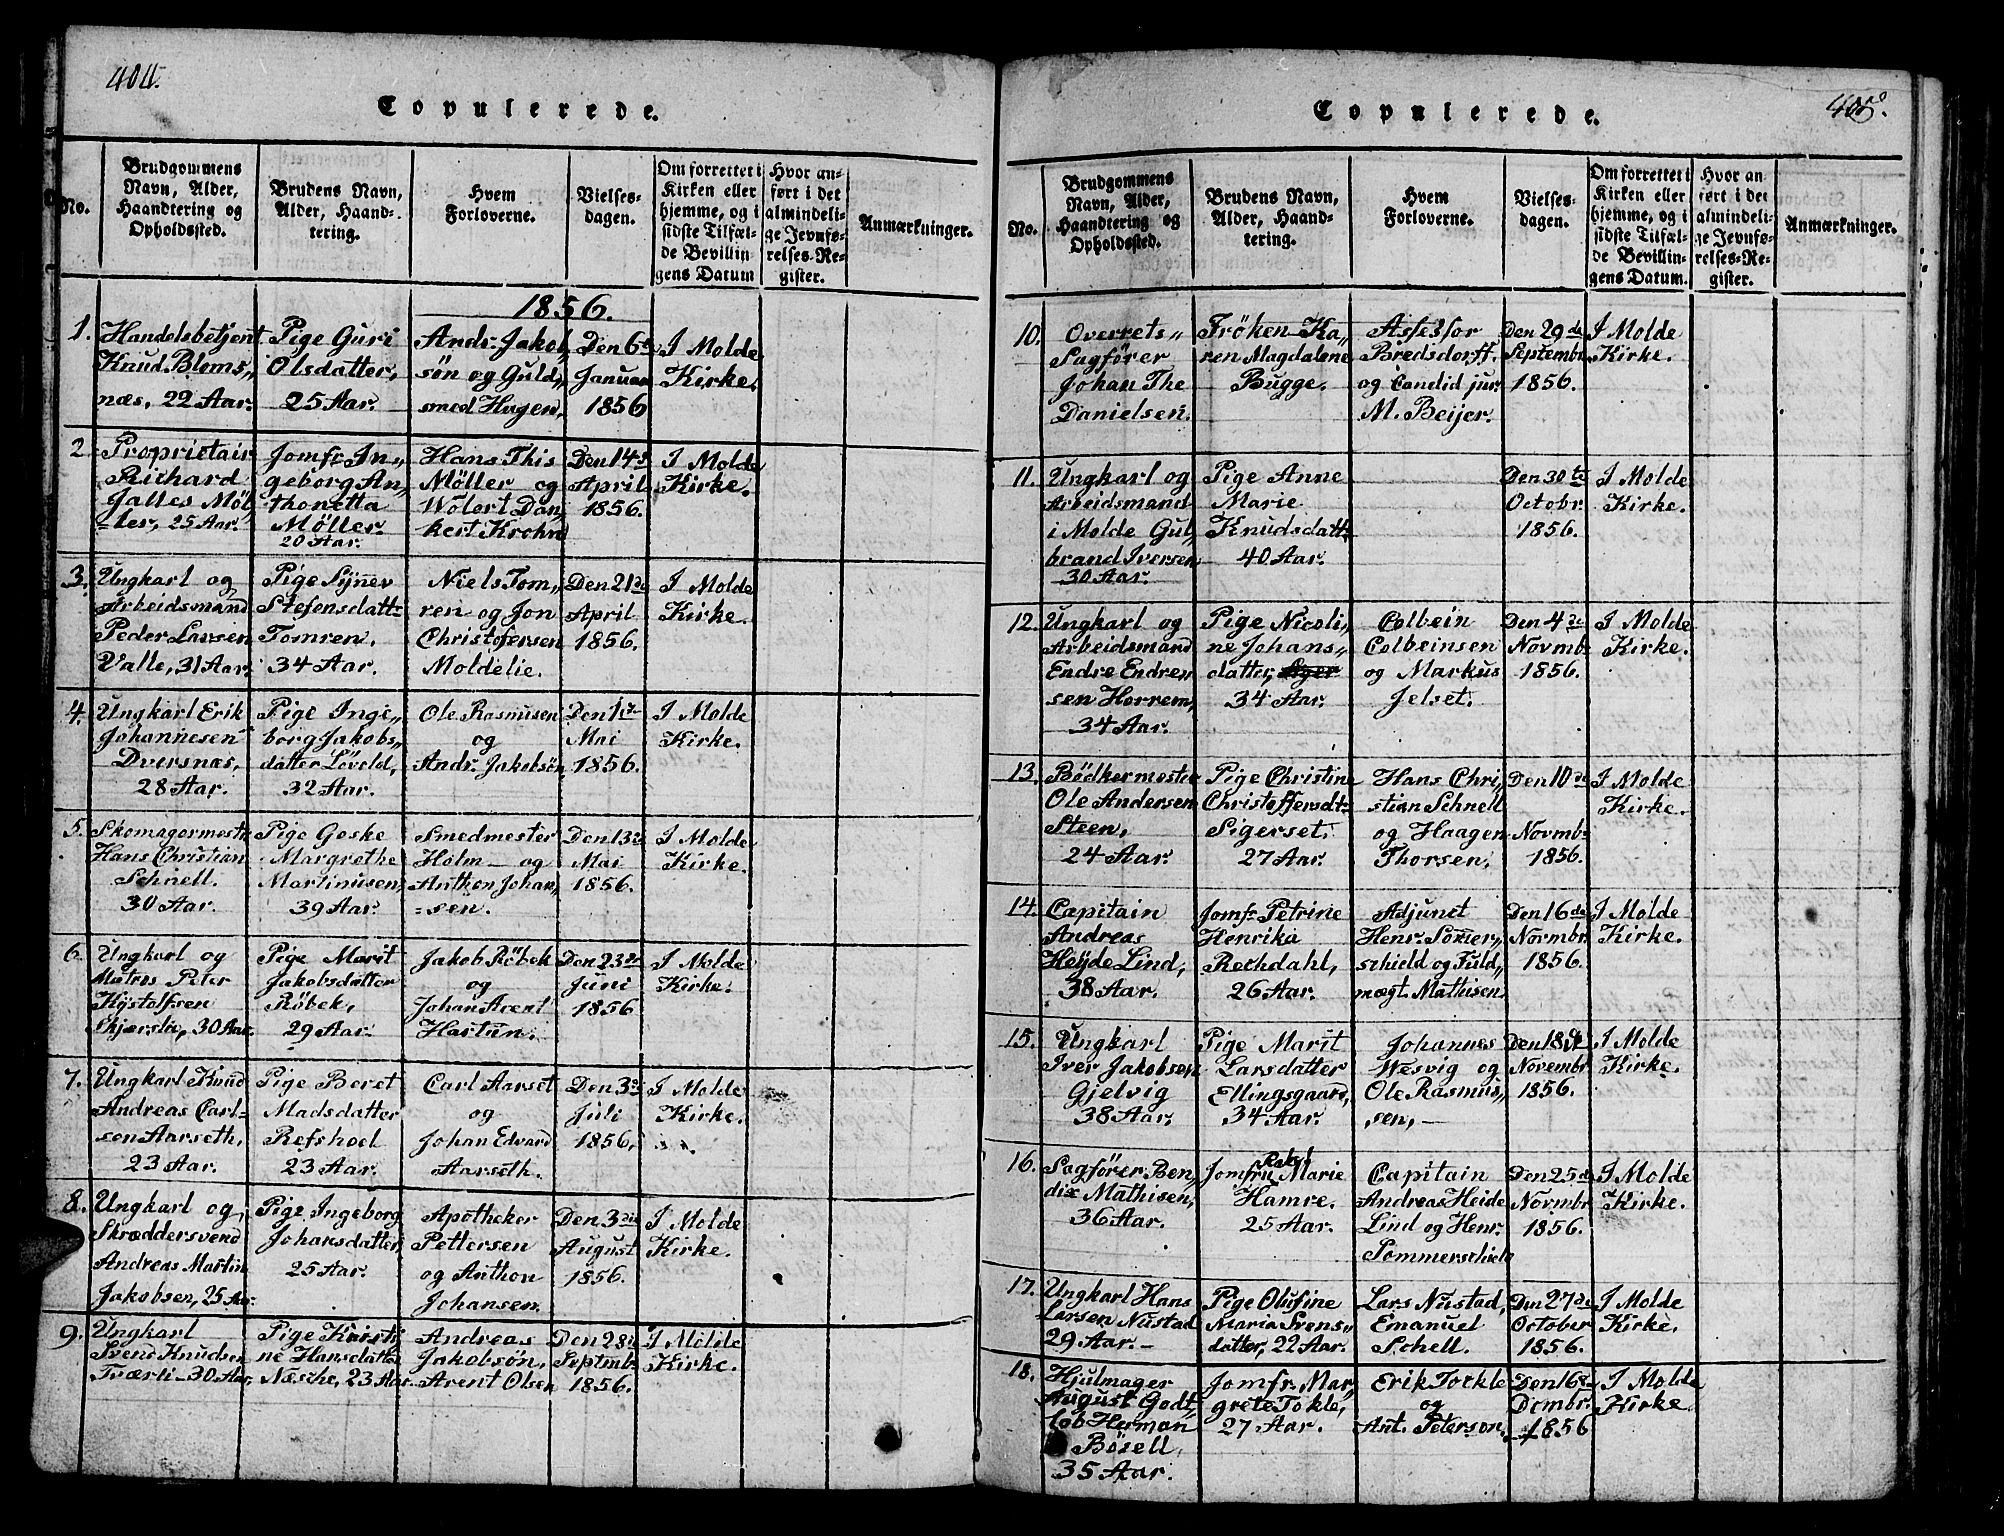 404.
Copulerede.
No.
Brudgommens
Navn, Alder,
Haandtering og
Opholdssted.
Brudens Navn,
Alder, Haand-
tering.
Hvem
Forloverne.
Vielses-
dagen.
Om forrettet i
Kirken eller
hjemme, og i
sidste Tilfæl-
de Bevillin-
gens Datum
Hvor an-
ført i det
almindeli-
ge Jevnfø-
relses-Re-
gister.
Anmærkninger.
1856.
1.
Handelsbetjent
Knud Bloms„
næs, 22 Aar.
Pige Guri
Olsdatter,
25 Aar.
Andr. Jakob„
søn og Guld„
smed Hagen,
Den 6te
Januar
1856
I Molde
Kirke.
2
Proprietair
Richard
Galles Møl-
-ler, 25 Aar.
Jomfr. In„
geborg An„
thonetta
Møller
20 Aar.
Hans This
Møller og
Wolert Dan„
kert Krohn
Den 14de
April
1856.
I Molde
Kirke.
3.
Ungkarl og
Arbeidsmand
Peder Larsen
Valle, 31 Aar.
Pige Synnev
Stefensdatt-
Tomren.
34 Aar.
Niels Tom„
ren og Jon
Christofersen
Moldelie.
Den 21de
April
1856.
I Molde
Kirke.
4.
Ungkarl Erik
Johannesen
Dversnæs,
28 Aar.
Pige Inge„
borg Jakobs„
datter Løvold,
32 Aar.
Ole Rasmusen
og
Andr. Jakobsøn
Den 1ste
Mai
1856.
I Molde
Kirke.
5.
Skomagermestr.
Hans Christian
Schnell.
30 Aar.
Pige Geske
Margrethe
Martinusen,
39 Aar.
Smedmester
Holm - og
Anthon Johan„
-sen.
Den 13de
Mai
1856.
I Molde
Kirke.
6.
Ungkarl og
Matros Peter
Kystolfsen
Skjærslie, 30 Aar.
Pige Marit
Jakobsdatter
Røbek,
29 Aar.
Jakob Røbek
og
Johan Arent
Hartun.
Den 23de
Juni
1856
I Molde
Kirke.
7.
Ungkarl Knud
Andreas Carl-
sen Aarseth,
23 Aar.
Pige Beret
Madsdatter
Refshoel
23 Aar.
Carl Aarset
og
Johan Edvard
Aarseth.
Den 3de
Juli
1856,
I Molde
Kirke.
8.
Ungkarl og
Skræddersvend
Andreas Martin
Jakobsen, 25 Aar.
Pige Ingeborg
Johansdatter,
25 Aar.
Apotheker
Pettersen
og Anthon
Johansen.
Den 3die
August
1856.
I Molde
Kirke.
9.
Ungkarl
Svend Knudsen
Tværli - 30 Aar.
Pige Kirsti
ne Hansdatter
Næsche, 23 Aar.
Andreas
Jakobsøn,
Arent Olsen
Den 28de
Septmbr
1856.
I Molde
Kirke.
405.
Copulerede.
No.
Brudgommens
Navn, Alder,
Haandtering og
Opholdssted.
Brudens Navn,
Alder, Haand-
tering.
Hvem
Forloverne.
Vielses-
dagen.
Om forrettet i
Kirken eller
hjemme, og i
sidste Tilfæl-
de Bevillin-
gens Datum.
Hvor an-
ført i det
almindeli-
ge Jevnfø-
relses-Re-
gister.
Anmærkninger.
10.
Overrets„
Sagfører
Johan The
Danielsen.
Frøken Ka„
ren Magdalene
Bugge.
Assessor
Bredsdorff.
og Candid jur.
M. Beijer.
Den 29de
Septembr
1856.
I Molde
Kirke.
11.
Ungkarl og
Arbeidsmand
i Molde Gul„
brand Iversen
30 Aar.
Pige Anne
Marie
Knudsdatt-
40 Aar.
Den 30te
Octobr.
1856.
I Molde
Kirke.
12.
Ungkarl og
Arbeidsmand
Endre Endre„
sen Horrem,
34 Aar.
Pige Nicoli„
ne Johans„
datter,
34 Aar.
Colbein
Colbeinsen
og Markus
Jelset.
Den 4de
Novmb-
1856.
I Molde
Kirke.
13.
Bødkermester
Ole Andersen
Steen,
24 Aar.
Pige Christine
Christoffersdt-
Sigerset,
27 Aar.
Hans Chri„
stian Schnell
og Haagen
Thorsen,
Den 10de
Novmb-
1856.
I Molde
Kirke.
14.
Capitain
Andreas
Heyde Lind,
38 Aar.
Jomfr. Petrine
Henrika
Rechdahl,
26 Aar.
Adjunct
Henr. Somer„
schield og Fuld„
mægt. Mathisen
Den 16de
Novmbr.
1856.
I Molde
Kirke.
15.
Ungkarl
Iver Jakobsen
Gjelvig
38 Aar.
Pige Marit
Larsdatter
Ellingsgaard,
34 Aar.
Johannes
Wesvig og
Ole Rasmus„
sen, -
Den 18de
Novembr.
1856.
I Molde
Kirke.
16.
Sagfører Ben„
dix Mathisen,
36 Aar.
Jomfru Marie
Hamre.
25 Aar.
Capitain
Andreas Heide
Lind og Henr.
Sommerschield
Den 25de
Novmbr.
1856.
I Molde
Kirke.
17.
Ungkarl Hans
Larsen Nustad
29 Aar. -
Pige Olufine
Maria Svens„
datter, 22 Aar.
Lars Nustad,
Emanuel
Schell.
Den 27de
October
1856.
I Molde
Kirke.
18.
Hjulmager
August Godt„
lob Herman
Bøsell,
35 Aar.
Jomfr. Mar„
grete Tokle,
27 Aar.
Erik Tockle
og
Ant. Peterson.
Den 16de
Dcmbr.
1856
I Molde
Kirke.